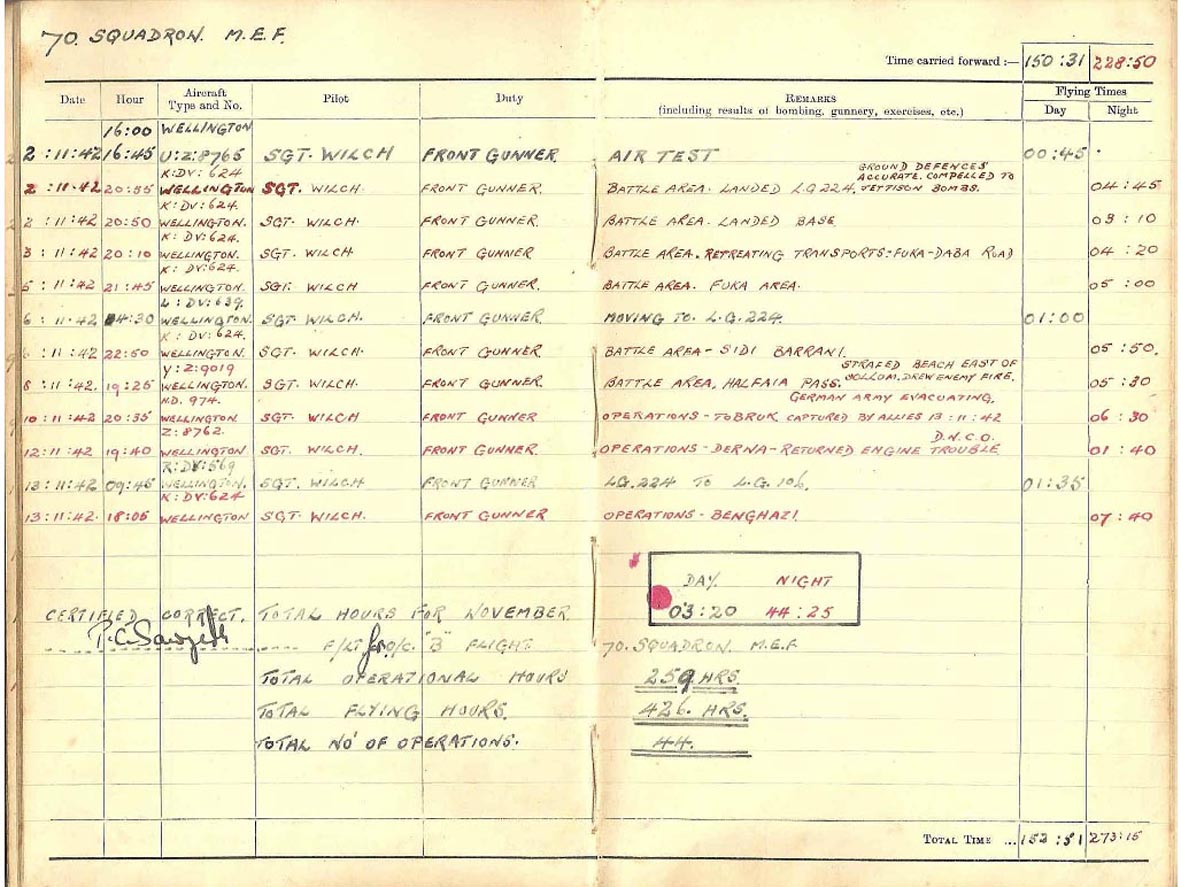 70. SQUADRON. M.E.F.
Time carried forward :— 150:31 228:50
Date Hour Aircraft Type and No. Pilot Duty REMARKS (including results of bombing, gunnery, exercises, etc.) Flying Times Day Night
16:00 WELLINGTON
2:11:42 16:45 U:Z:8765 SGT. WILCH FRONT GUNNER. AIR TEST 00:45
K:DV:624 GROUND DEFENCES ACCURATE. COMPELLED TO
2:11:42 20:55 WELLINGTON SGT. WILCH. FRONT GUNNER. BATTLE AREA. LANDED L.G 224. JETTISON BOMBS. 04:45
K:DV:624.
2:11:42 20:50 WELLINGTON. SGT. WILCH. FRONT GUNNER. BATTLE AREA. LANDED BASE. 03:10
K:DV:624.
3:11:42 20:10 WELLINGTON. SGT. WILCH FRONT GUNNER BATTLE AREA. RETREATING TRANSPORTS:FUKA-DABA ROAD 04:20
K:DV:624.
5:11:42 21:45 WELLINGTON. SGT. WILCH FRONT GUNNER. BATTLE AREA. FUKA AREA. 05:00
L:DV:639.
6:11:42 04:30 WELLINGTON. SGT. WILCH. FRONT GUNNER. MOVING TO L.G.224. 01:00
K:DV:624.
6:11:42 22:50 WELLINGTON. SGT. WILCH. FRONT GUNNER. BATTLE AREA - SIDI BARRANI. 05:50.
Y:Z:9019 STRAFED BEACH EAST OF
8:11:42. 19:25 WELLINGTON. SGT. WILCH. FRONT GUNNER. BATTLE AREA, HALFAIA PASS. SOLLOM. DREW ENEMY FIRE. 05:30
H.D. 974. GERMAN ARMY EVACUATING.
10:11:42 20:35 WELLINGTON SGT. WILCH. FRONT GUNNER OPERATIONS - TOBRUK CAPTURED BY ALLIES 13:11:42 06:30
Z:8762. D.N.C.O.
12:11:42 19:40 WELLINGTON SGT. WILCH. FRONT GUNNER OPERATIONS - DERNA - RETURNED ENGINE TROUBLE 01:40
R:DV:569
13:11:42 09:45 WELLINGTON. SGT. WILCH. FRONT GUNNER L.G.224 TO L.G. 106. 01:35
K:DV:624
13:11:42. 18:05 WELLINGTON SGT. WILCH. FRONT GUNNER OPERATIONS - BENGHAZI 07:40
DAY. NIGHT
CERTIFIED CORRECT. TOTAL HOURS FOR NOVEMBER 03:20 44:25
F/LT for O/C. "B" FLIGHT 70. SQUADRON. M.E.F
TOTAL OPERATIONAL HOURS 259 HRS.
TOTAL FLYING HOURS. 426. HRS.
TOTAL NO' OF OPERATIONS. 44.
TOTAL TIME ... 153:51 273:15